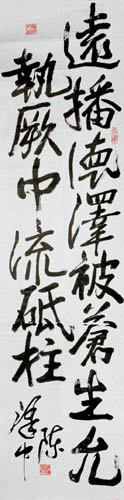 遠播德澤被蒼生允
執厥中流砥柱
陳